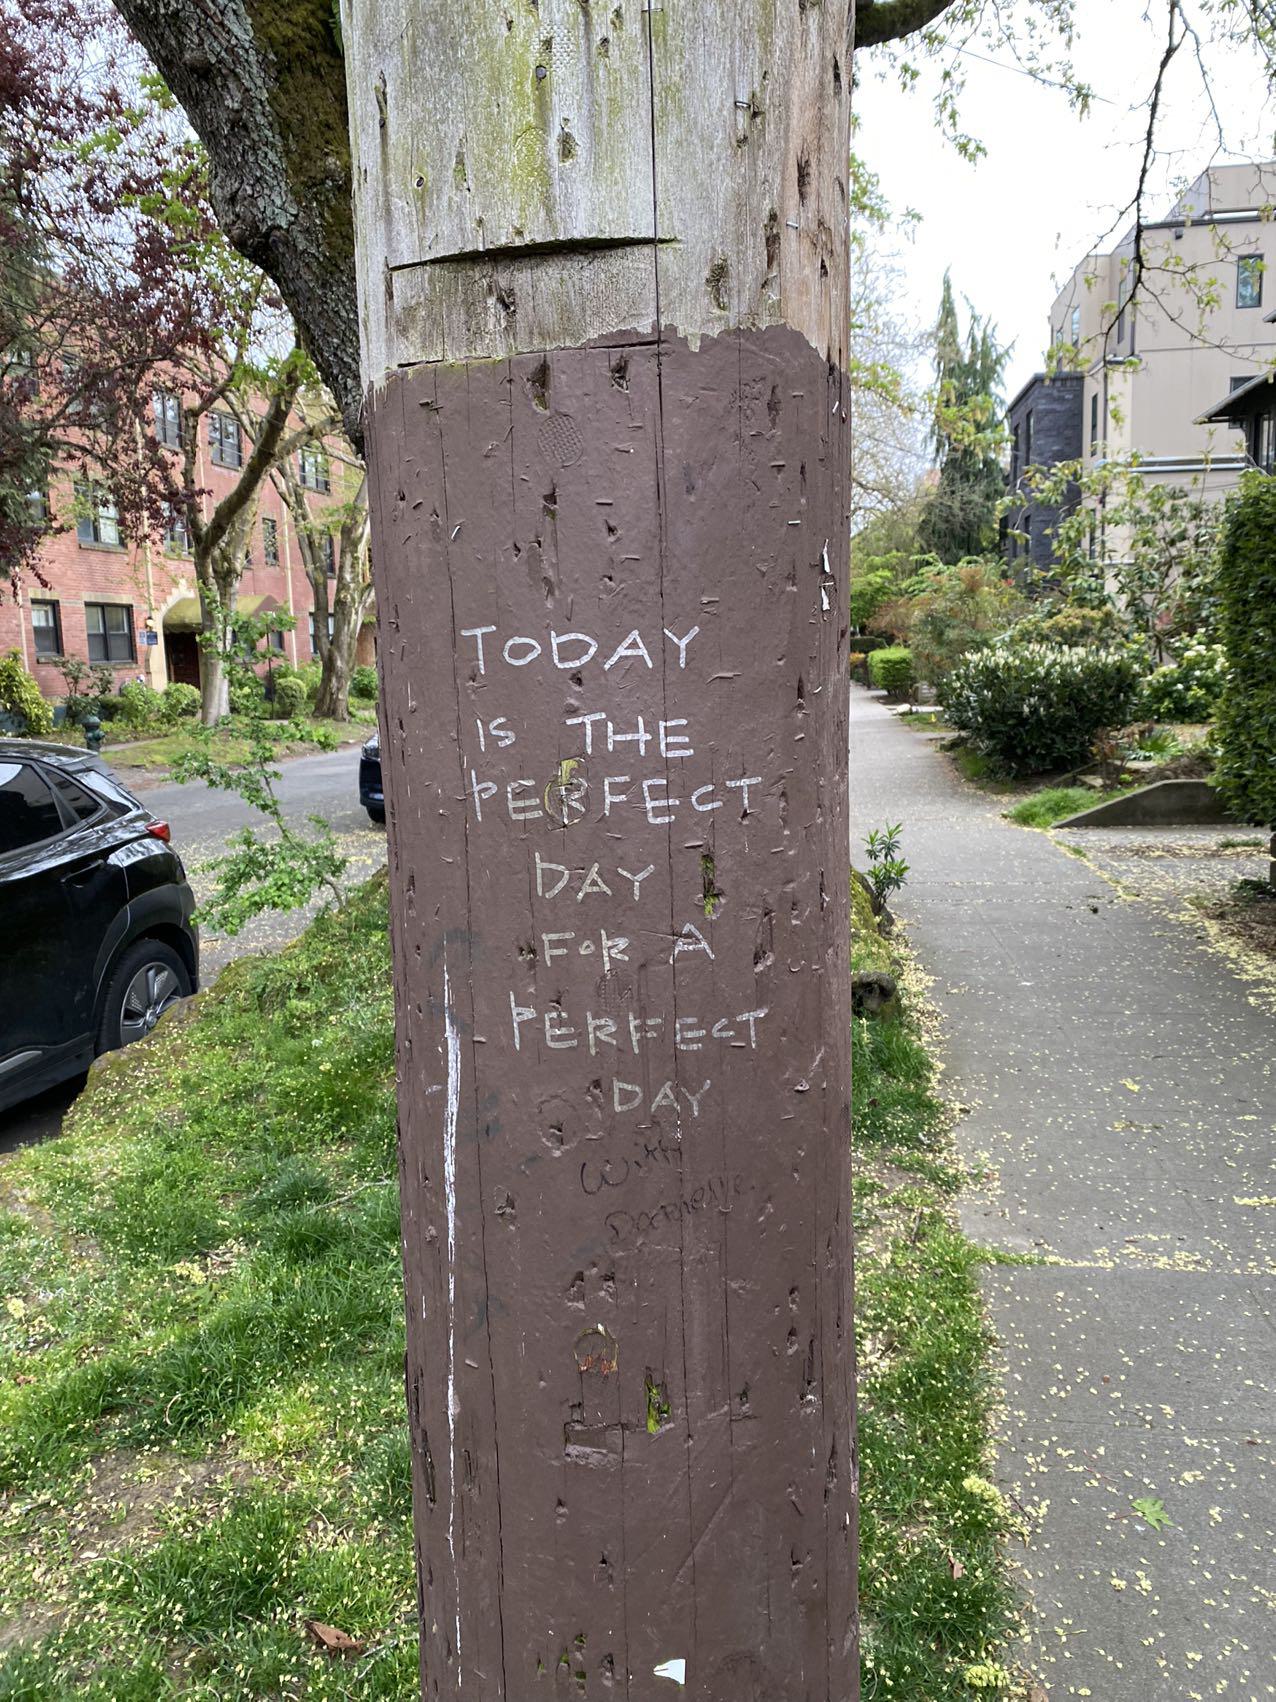 TODAY
IS THE
PERFECT
DAY
FOR A
PERFECT
DAY
With